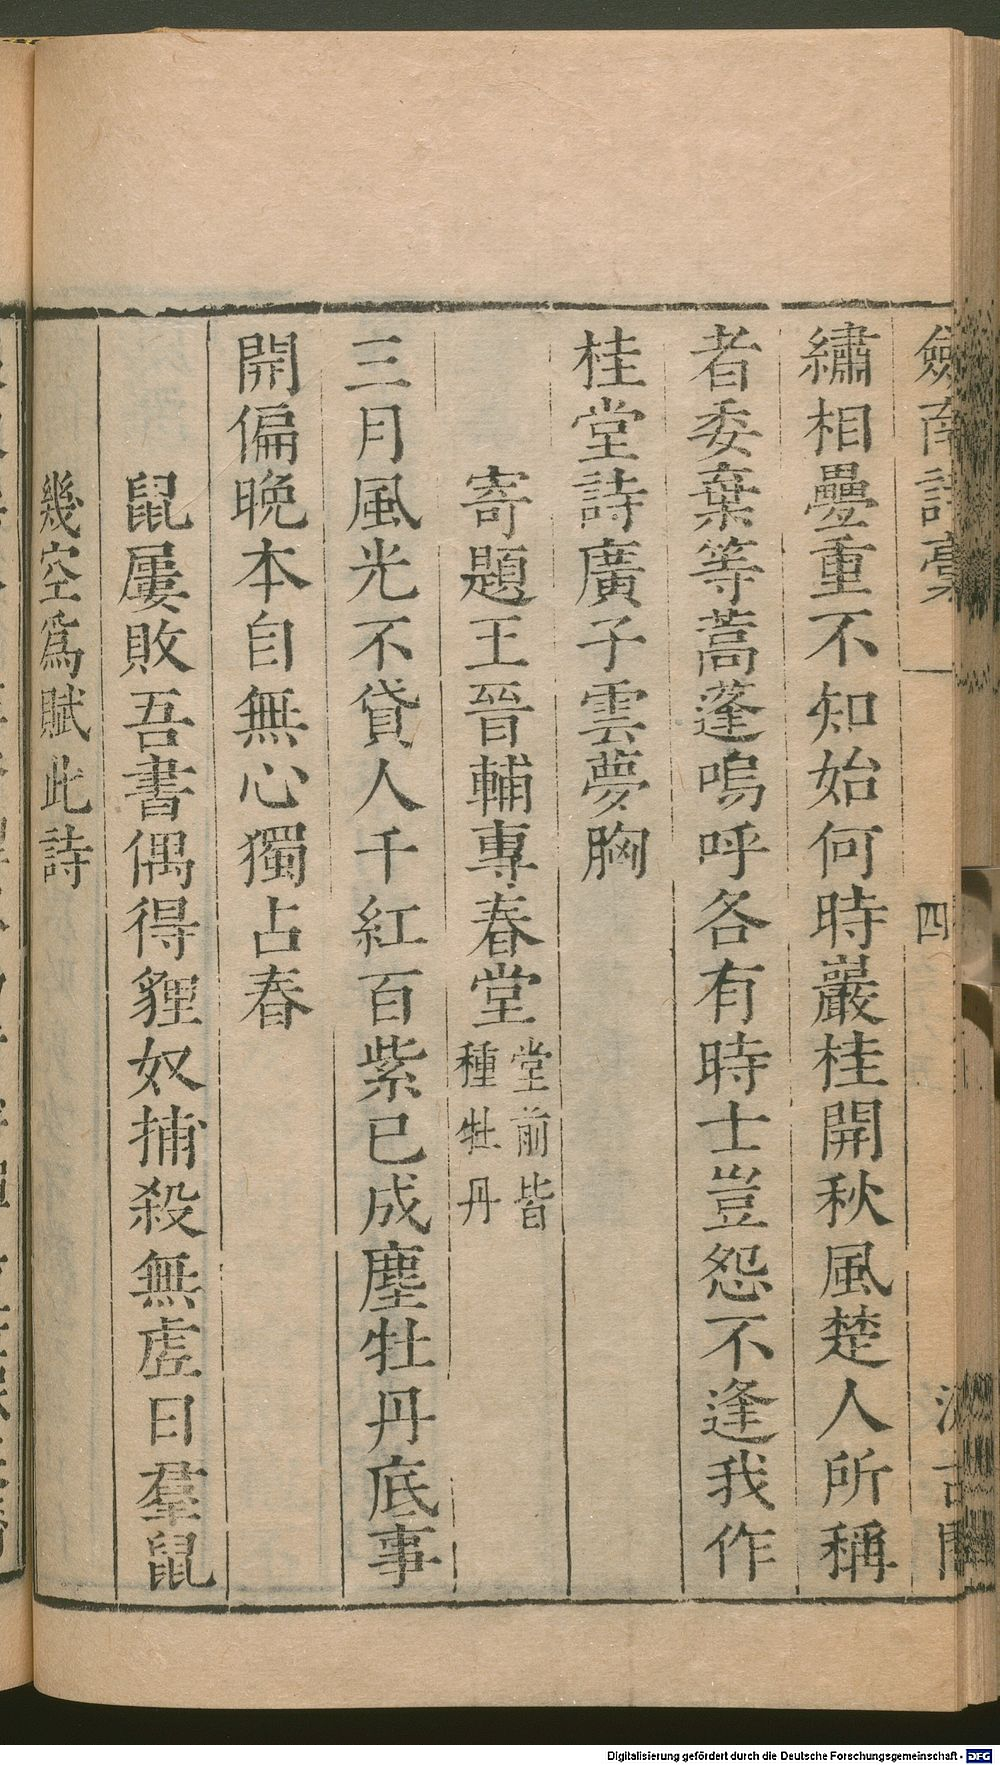 劍南詩稾 四 汲古閣
繡相疊重不知始何時巖桂開秋風楚人所稱
者委棄等蒿蓬嗚呼各有時士豈怨不逢我作
桂堂詩廣子雲夢胸
寄題王晉輔專春堂 堂前皆種牡丹
三月風光不貸人千紅百紫已成塵牡丹底事
開偏晚本自無心獨占春
鼠屢敗吾書偶得貍奴捕殺無虛日羣鼠
幾空爲賦此詩
Digitalisierung gefördert durch die Deutsche Forschungsgemeinschaft - DFG